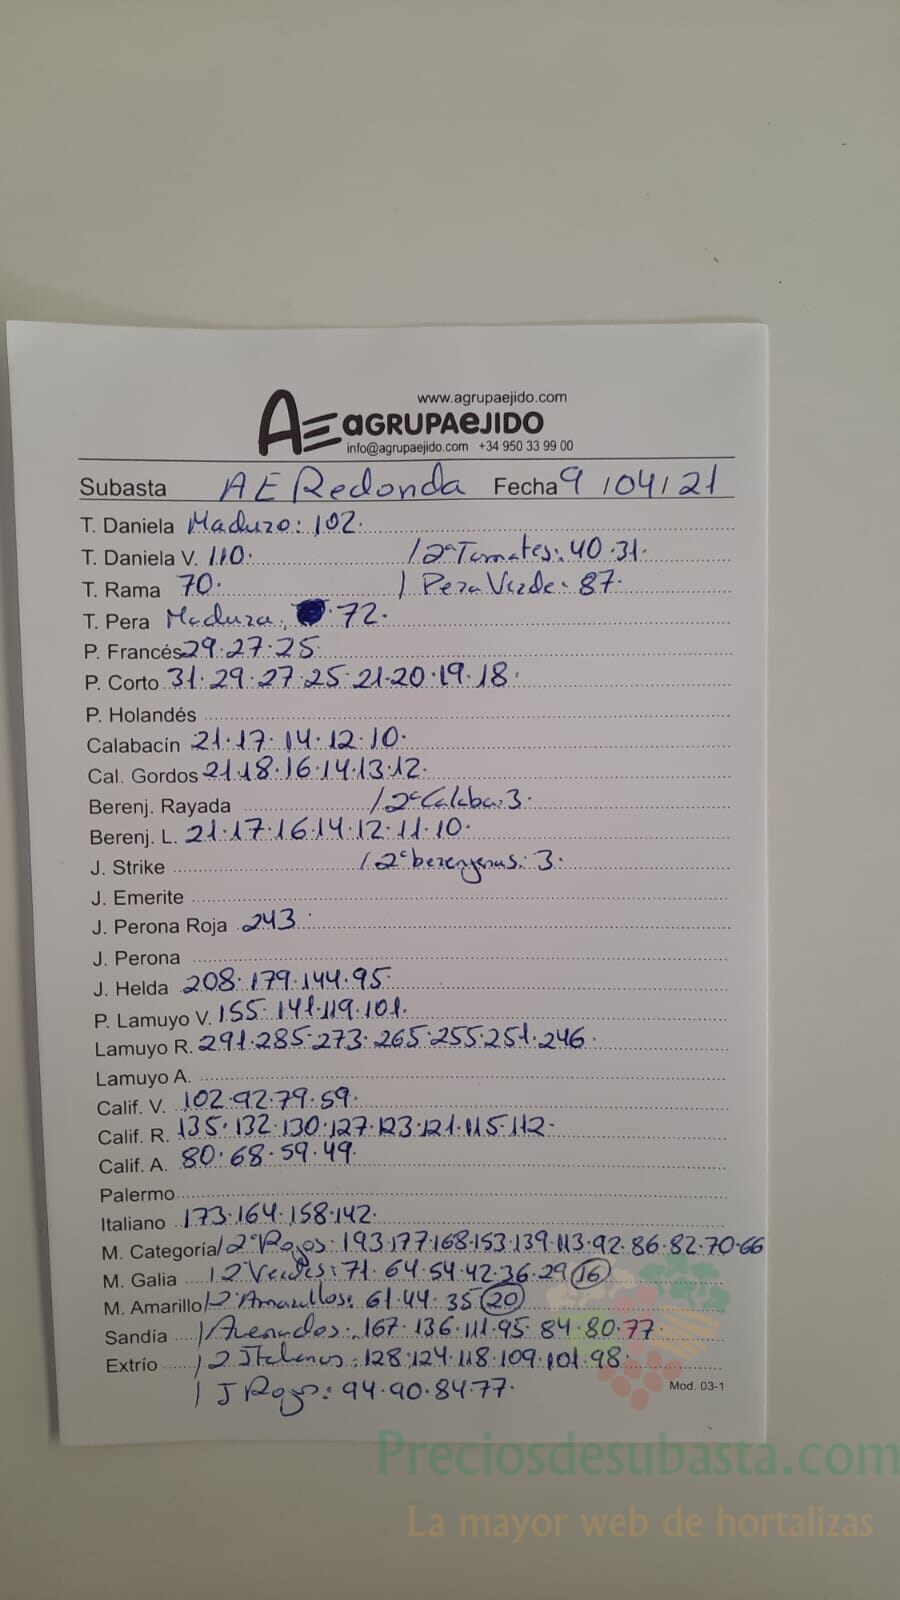 www.agrupaejido.com
AE aGRUPAeJIDO
info@agrupaejido.com +34 950 33 99 00
Subasta AE Redonda Fecha 9/04/21
T. Daniela Maduro: 102.
T. Daniela V. 110. / 2ª Tomates: 40.31.
T. Rama 70. / Pera Verde: 87.
T. Pera Madura: 72.
P. Francés 29.27.25.
P. Corto 31.29.27.25.21.20.19.18.
P. Holandés
Calabacín 21.17.14.12.10.
Cal. Gordos 21.18.16.14.13.12.
Berenj. Rayada / 2ª Calaba: 3.
Berenj. L. 21.17.16.14.12.11.10.
J. Strike / 2ª berenjenas: 3.
J. Emerite
J. Perona Roja 243.
J. Perona
J. Helda 208.179.144.95.
P. Lamuyo V. 155.141.119.101.
Lamuyo R. 291.285.273.265.255.251.246.
Lamuyo A.
Calif. V. 102.92.79.59.
Calif. R. 135.132.130.127.123.121.115.112.
Calif. A. 80.68.59.49.
Palermo
Italiano 173.164.158.142.
M. Categoría / 2ª Rojos: 193.177.168.153.139.113.92.86.82.70.66
M. Galia / 2 Verdes: 71.64.54.42.36.29.16
M. Amarillo / 2ª Amarillos: 61.44.35.20
Sandía / Asurados: 167.136.111.95.84.80.77.
Extrío / 2 Italianos: 128.124.118.109.101.98.
/ J Rojos: 94.90.84.77.
Mod. 03-1
Preciosdesubasta.com
La mayor web de hortalizas